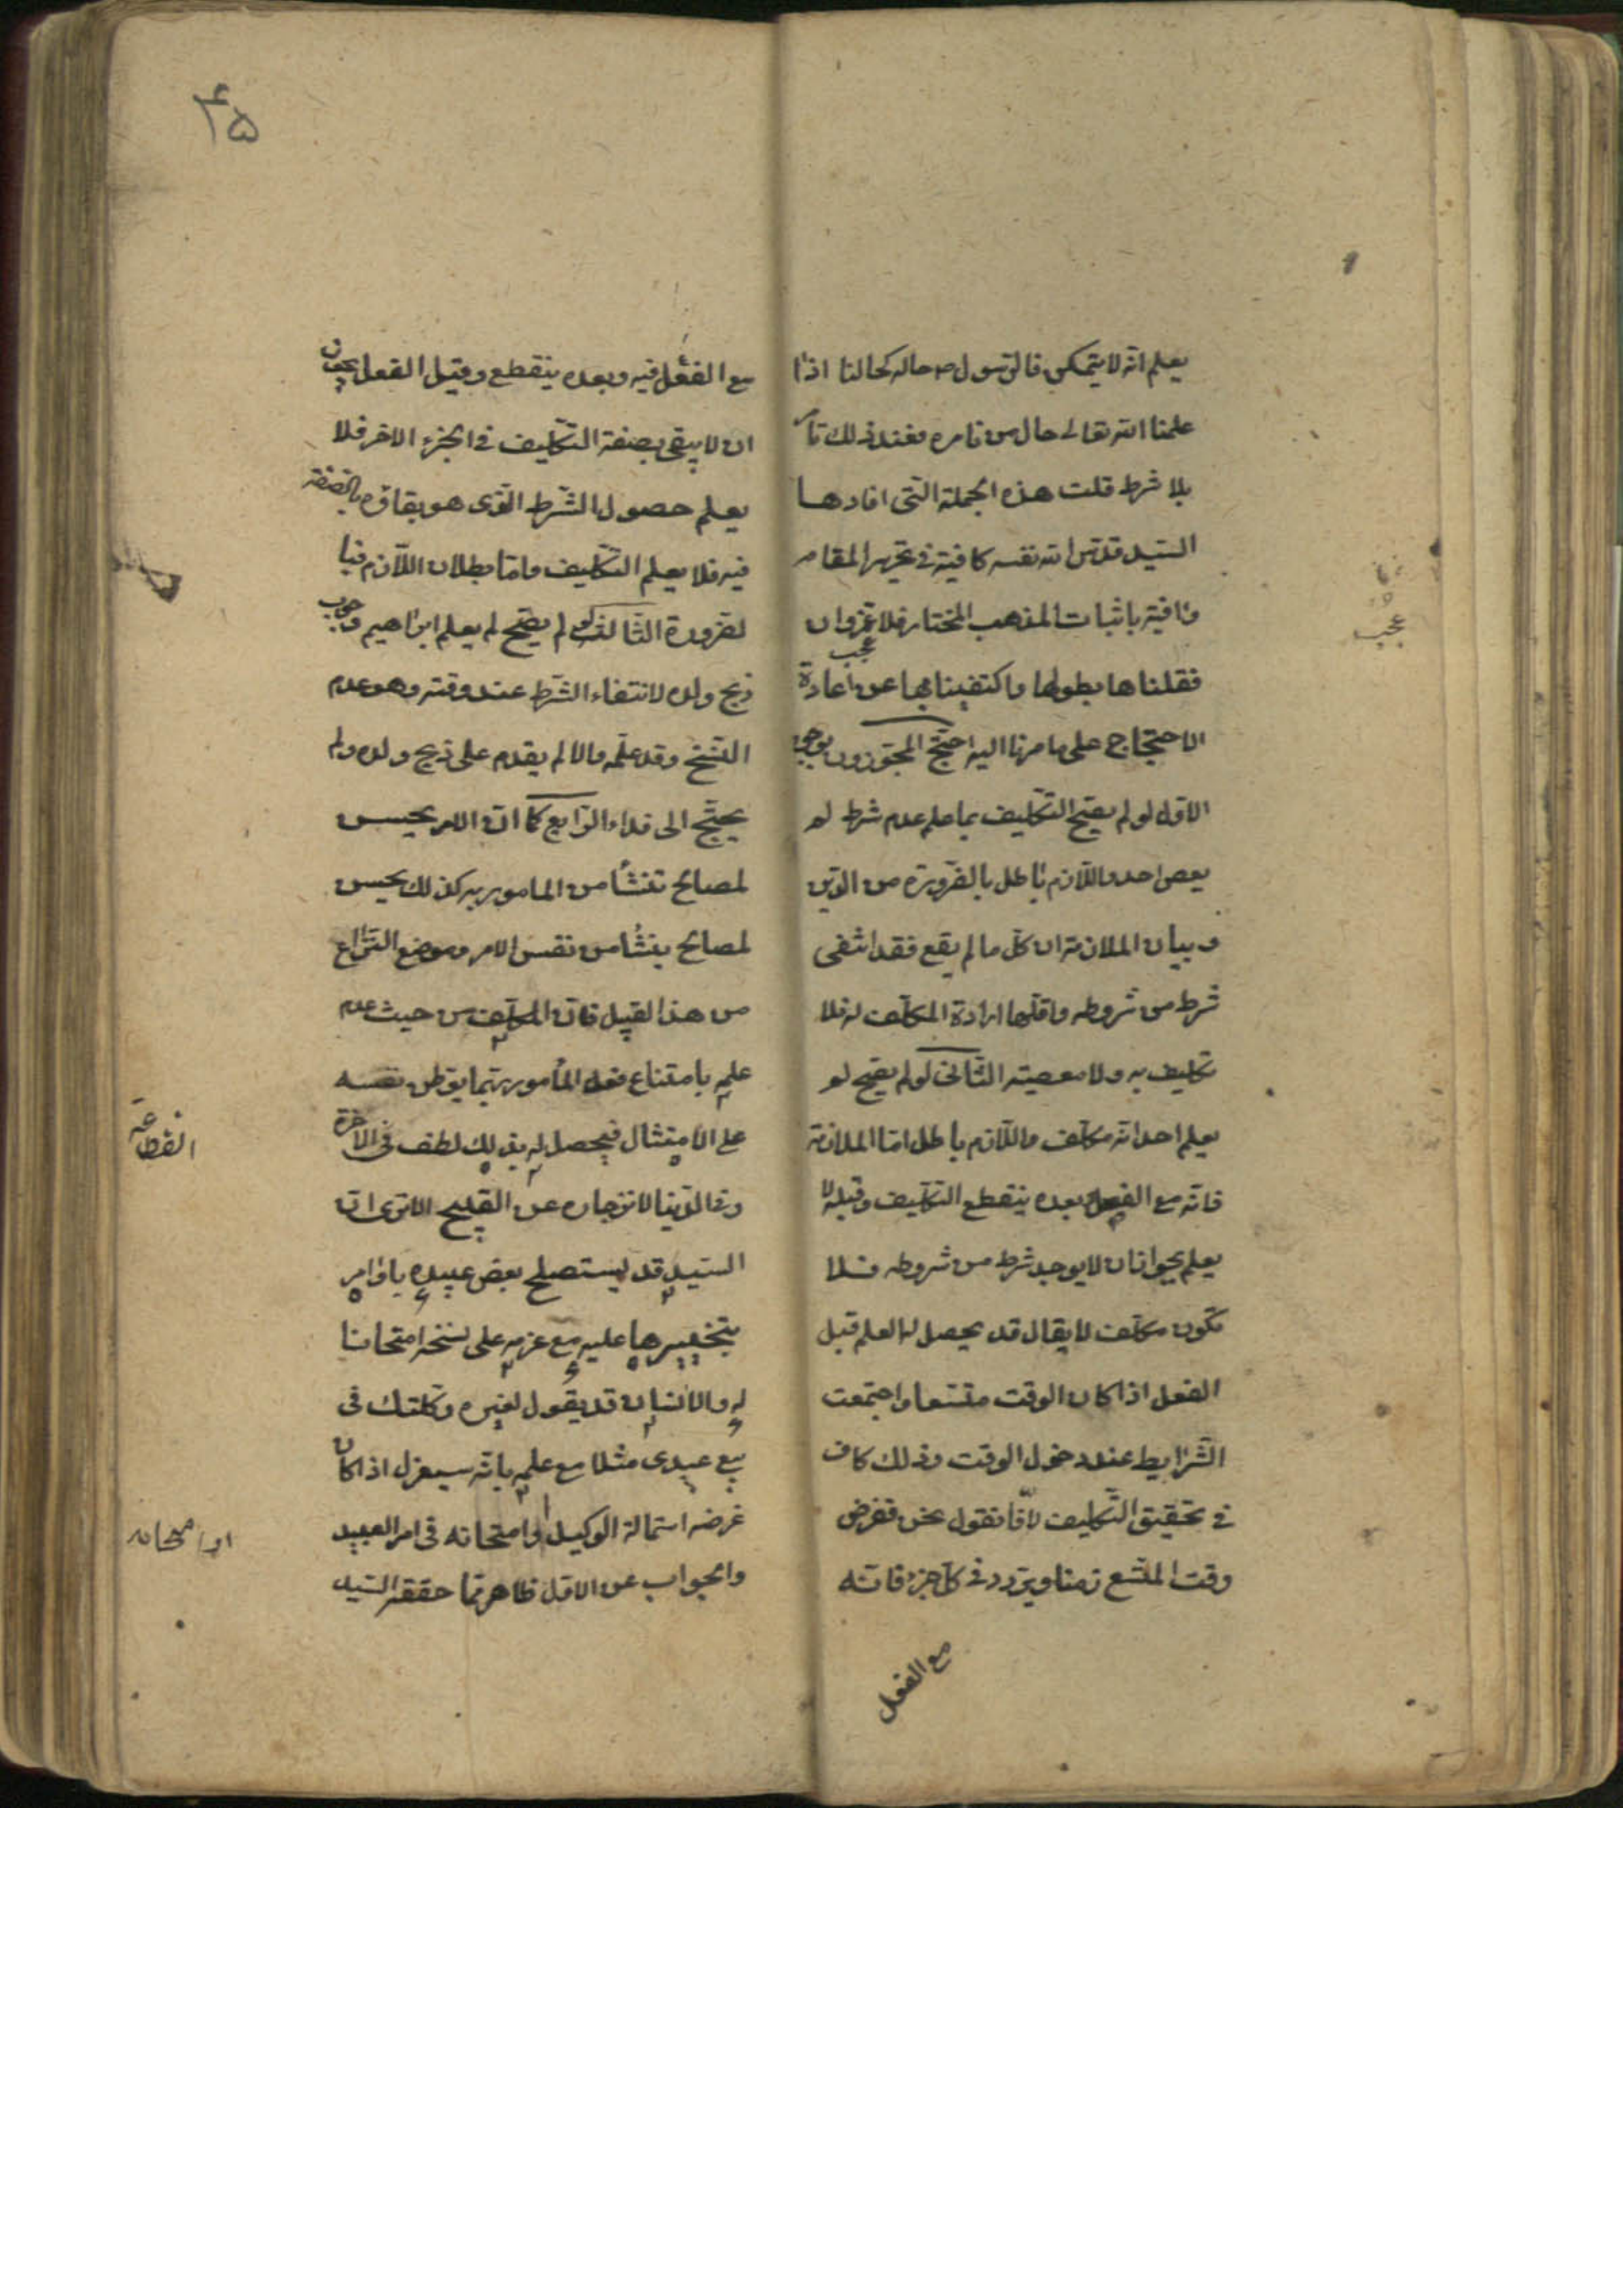 يعلم انه لا يتمكن فالرسول ص حاله كحالنا اذا
علمنا الله تعالى حال من نامره فعند ذلك نامر
بلا شرط قلت هذه الجملة التى افادها
السيد قدس الله نفسه كافية فى تحرير المقام
وافية باثبات المذهب المختار فلا غرو ان
عجب
فنقلناها بطولها واكتفينا بها عن اعادة
الاحتجاج على ما صرنا اليه احتج المجوزون بوجوه
الاول لو لم يصح التكليف بما علم عدم شرطه لم
يعص احد واللازم باطل بالضرورة من الدين
و بيان الملازمة ان كل ما لم يقع فقد انتفى
شرط من شروطه واقلها ارادة المكلف له فلا
تكليف به ولا معصية الثانى لو لم يصح لم
يعلم احد انه مكلف واللازم باطل اما الملازمة
فانه مع الفعل و بعده ينقطع التكليف وقبله لا
يعلم لجواز ان لا يوجد شرط من شروطه فلا
تكون مكلف لا يقال قد يحصل له العلم قبل
الفعل اذا كان الوقت متسعا واجتمعت
الشرايط عند دخول الوقت وذلك كاف
فى تحقيق التكليف لانا نقول نحن نفرض
وقت المتسع زمنا ويتردد فى كل جزء فانه
مع الفعل
عجب
۴۵
مع الفعل فيه وبعده ينقطع وقبل الفعل يجوز
ان لا يبقى بصفة التكليف فى الجزء الاخر فلا
يعلم حصول الشرط الذى هو بقاؤه بالصفة
فيه فلا يعلم التكليف واما بطلان اللازم فبا
لضرورة الثالث لو لم يصح لم يعلم ابراهيم وجوب
ذبح ولده لانتفاء الشرط عند وقته وهو عدم
النسخ وقد علمه والا لم يقدم على ذبح ولده ولم
يحتج الى فداء الرابع كما ان الامر يحسن
لمصالح تنشأ من المامور به كذلك يحسن
لمصالح ينشأ من نفس الامر وموضع النزاع
من هذا القبيل فان المكلف من حيث عدم
علمه بامتناع فعل المأمور به ربما يوطن نفسه
على الامتثال فيحصل له بذلك لطف فى الاخرة
وفى الدنيا لانزجاره عن القبيح الا ترى ان
السيد قد يستصلح بعض عبيده باوامر
يتجزها عليه مع عزمه على نسخه امتحانا
له والانسان قد يقول لغيره وكلتك فى
بيع عبدى مثلا مع علمه بانه سيعزل اذا كان
غرضه استمالة الوكيل او امتحانه فى امر العبيد
والجواب عن الاول ظاهر مما حققه السيد
او امتحانه